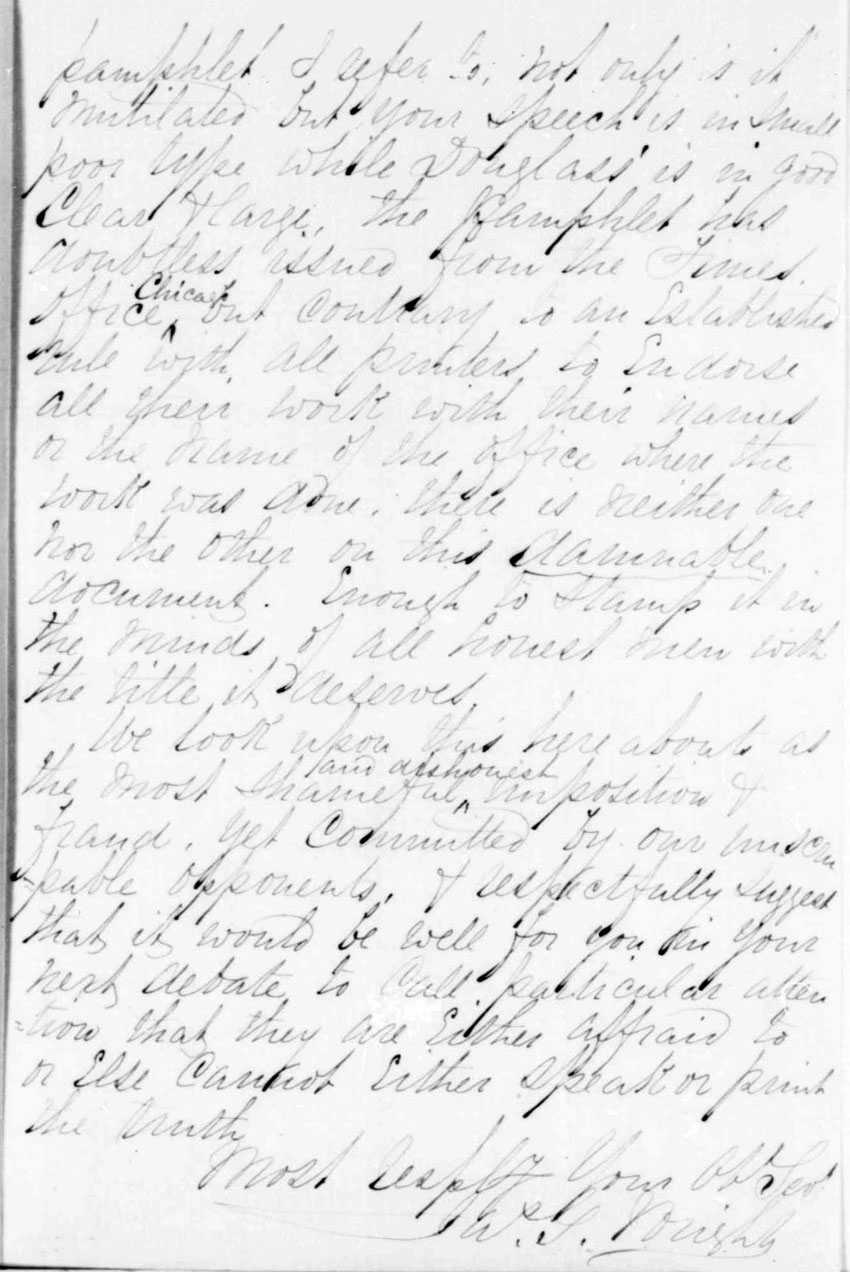 pamphlet I refer to, not only is it
mutilated but your speech is in small
poor type while Douglass' is in good
Clear & large, the Pamphlet has
doubtless issued from the Times
Chicago
office, but contrary to an Established
rule with all printers to Endorse
all their work with their names
or the name of the office where the
work was done, there is neither one
nor the other on this damnable
document. Enough to stamp it in
the minds of all honest men with
the title it deserves
We look upon this here abouts as
and dishonest
the most shameful imposition &
fraud, yet Committed by our unscru
-pable opponents, & respectfully suggest
that it would be well for you in your
next debate to Call particular atten
-tion that they are Either affraid to
or Else Cannot Either speak or print
the truth
Most Respfy Your Obt Servt
W. S. Wright